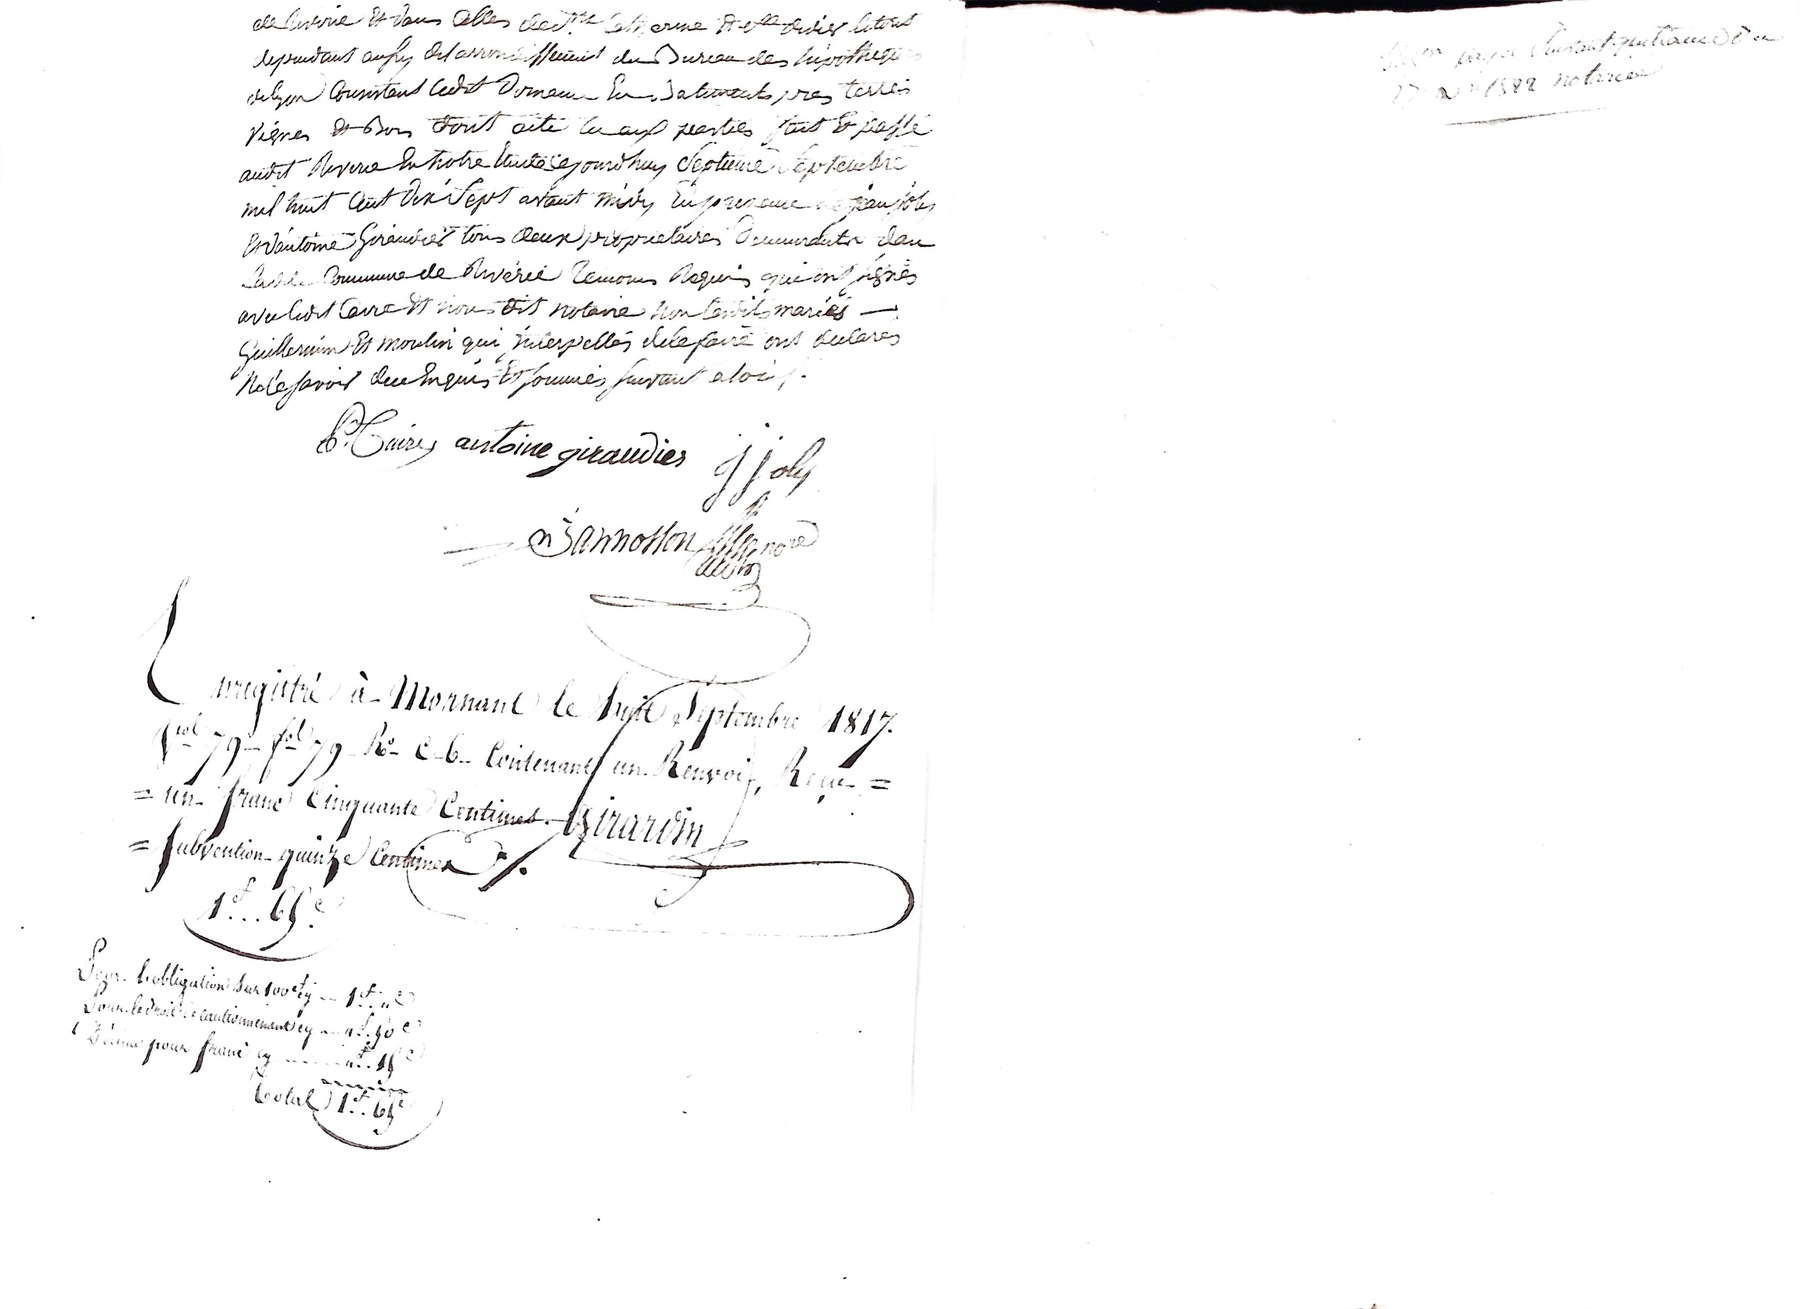 de Riverie Et dans Celles de Ste Catherine Et St didier letout
dependant aussy del'arrondissement du Bureau des hipotheques
delyon Consistant ledit Domaine En Batiments pres terres
vignes Et Bois dont acte lu aux parties fait Et passé
audit Riverie En notre Etude cejourdhuy Septieme Septembre
mil huit Cent Dix Sept avant midy En presence de jean joly
Et d'antoine Giraudier tous deux proprietaires Demeurants dan
Commune de Riverie temoins Requis qui ont signés
avec ledit Caire Et nous dit notaire non lesdits mariés —
Guillermin Et moulin qui interpellés dele faire ont declarés
Ne le savoir de ce Enquis Et sommés suivant la loi
Caire antoine giraudier j joly
Jannosson nore
Enregistré à Mornant le huit Septembre 1817.
vol 79 fol 79 Ro C 6 Contenant un Renvoi, Reçu =
= un franc Cinquante Centimes. Girardin
= Subvention quinze Centimes
1f .. 65c
Pour l'obligation sur 100f cy ... 1f .. "c
Pour le droit de cautionnement cy ... "f. 50c
Décime pour franc cy ...... "f.. 15c
Total 1f.. 65c
quittance
notariée